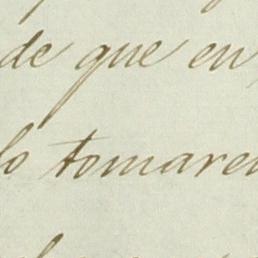 de que en
lo tomaren